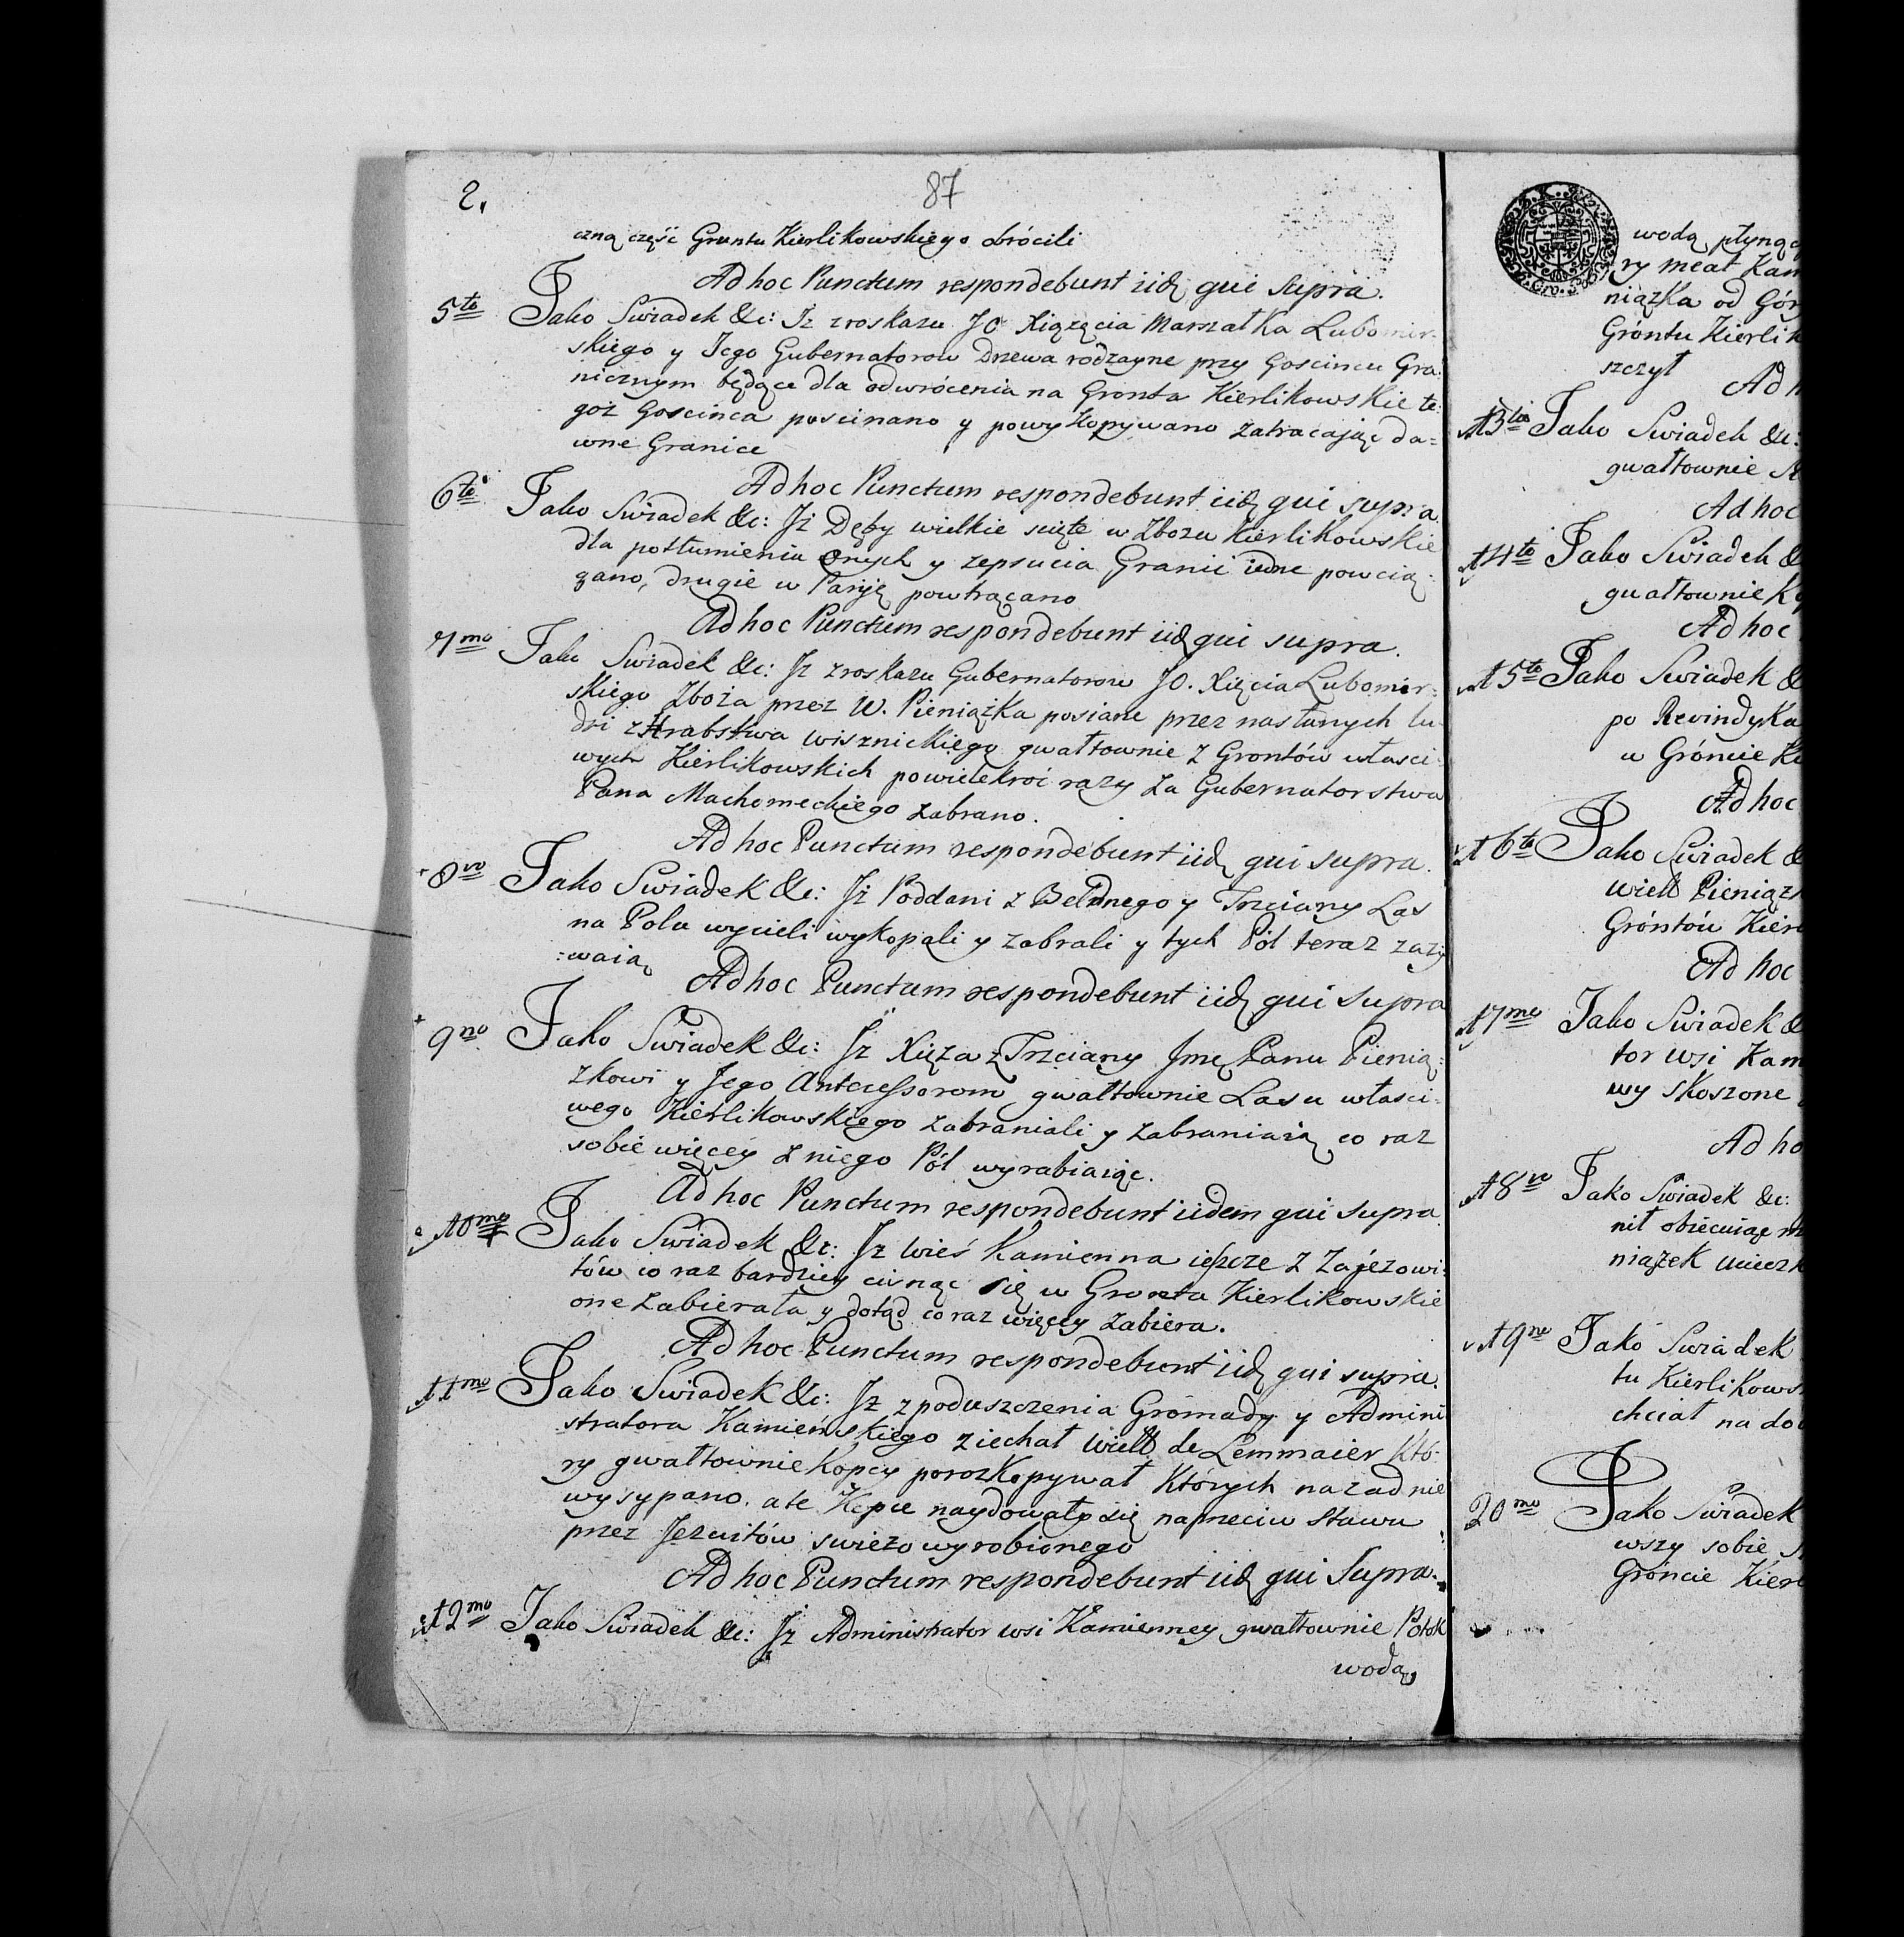 2.
87
czną część Gruntu Kierlikowskiego obrócili
Ad hoc Punctum respondebunt iidę qui Supra.
5to Jako Swiadek &c: Iż zroskazu JO Xiążęcia Marszałka Lubomir-
skiego y Jego Gubernatorow Drzewa rodzayne przy Goscincu Gra:
nicznym będące dla odwrócenia na Gronta Kierlikowskie te:
goż Goscinca poscinano y powykopywano zatracając da=
wne Granice
Ad hoc Punctum respondebunt iidę qui supra.
6to Jako Swiadek &c: Jż Dęby wielkie scięte w Zboża Kierlikowskie
dla potłumienia onych y zepsucia Granic iedne powcią:
gano, drugie w Paryję powtrącano
Ad hoc Punctum respondebunt iidę qui supra.
7mo Jako Swiadek &c: Jż zroskazu Gubernatorow JO. Xięcia Lubomir:
skiego Zboża przez W. Pieniążka posiane przez nasłanych lu
dzi z Hrabstwa wisznickiego gwałtownie z Grontów własci:
wych Kierlikowskich powielekroć razy za Gubernatorstwa
Pana Machomeckiego zabrano.
Ad hoc Punctum respondebunt iidę qui supra.
8vo Jako Swiadek &c: Jż Poddani z Bełdnego y Trzciany Las
na Polu wycieli wykopali y zabrali y tych Pól teraz zaży
:waią
Ad hoc Punctum respondebunt iidę qui supra
9no Jako Swiadek &c: Jż Xięża z Trzciany Jmę Panu Pienią:
żkowi y Jego Antecessorom gwałtownie Lasu własci:
wego Kierlikowskiego zabraniali y zabraniaią co raz
sobie więcey z niego Pól wyrabiaiąc.
Ad hoc Punctum respondebunt iidem qui supra.
10mo Jako Swiadek &c: Jż wieś Kamienna ieszcze z Zajezowi:
tów co raz bardziey cisnąc się w Gronta Kierlikowskie
one zabierała y dotąd co raz więcey zabiera.
Ad hoc Punctum respondebunt iidę qui supra.
11mo Jako Swiadek &c: Jż z poduszczenia Gromady y Admini
stratora Kamieńskiego ziechał Wielb de Lemmaier któ:
ry gwałtownie Kopcy porozkopywał których nazad nie
wysypano. ale Kępie naydowało się naprzeciw Stawu
przez Jezuitów swiezo wyrobionego
Ad hoc Punctum respondebunt iidę qui Supra.
12mo Jako Swiadek &c: Jż Administrator wsi Kamienney gwałtownie Potok
wodą,
wodą płynąc
ry meat Kam
niązka od Gór
Gróntu Kierlik
szczył
Ad h
13tio Jako Swiadek &c:
gwałtownie
Ad hoc
14to Jako Swiadek &
gwałtownie
Ad hoc
15to Jako Swiadek &
po Revindyka
w Gróncie Ki
Ad hoc
16to Jako Swiadek &
Wielb Pieniąz
Gróntów Kier
Ad hoc
17mo Jako Swiadek &
tor wsi Kam
wy skoszone
Ad ho
18vo Jako Swiadek &c:
nił obiecuiąc
niążek uciecz
19no Jako Swiadek
tu Kierlikows
chciał na do
20mo Jako Swiadek
wszy sobie
Gróncie Kierl